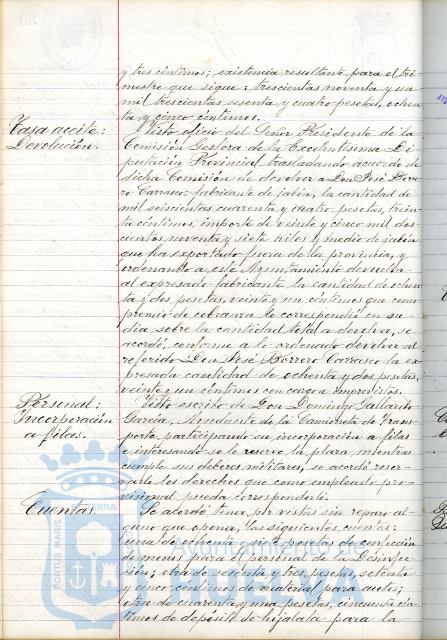 y tres céntimos; existencia resultante para el tri-
mestre que sigue: trescientas noventa y un
mil trescientas sesenta y cuatro pesetas, ochen-
ta y cinco céntimos.
Tasa aceite:
Devolución.
Visto oficio del Señor Presidente de la
Comisión Gestora de la Excelentísima Di-
putación Provincial trasladando acuerdo de
dicha Comisión de devolver a Don José Borre-
ro Carrasco fabricante de jabón, la cantidad de
mil seiscientas cuarenta y cuatro pesetas, trein-
ta céntimos, importe de veinte y cinco mil dos-
cuatos, noventa y siete kilos y medio de jabón
que ha exportado fuera de la provincia, y
ordenando a este Ayuntamiento devuelva
al expresado fabricante la cantidad de ochen-
ta y dos pesetas, veinte y un céntimos que como
premio de cobranza le correspondió en su
día sobre la cantidad total a devolver, se
acordó, conforme a lo ordenado devolver al
referido Don José Borrero Carrasco la ex-
presada cantidad de ochenta y dos pesetas,
veinte y un céntimos con cargo a Imprevistos.
Personal:
Incorporación
a filas.
Visto escrito de Don Domingo Gallardo
García, Ayudante de la Camioneta de Trans-
porte, participando su incorporación a filas
e interesando se le reserve la plaza mientras
cumple sus deberes militares, se acordó reser-
varle los derechos que como empleado pro-
visional pueda corresponderle.
Cuentas.
Se acordó tener por vistas sin reparo al-
guno que oponer, las siguientes cuentas:
una de ochenta y siete pesetas de confección
de monos para el personal de la Desinfec-
ción; otra de setenta y tres pesetas, setenta
y cinco céntimos de material para autos;
otra de cuarenta y una pesetas, cincuenta cén-
timos de depósito de hojalata para la
Ayuntamiento de
HUELVA
PORTUS MARIS
TERRAE